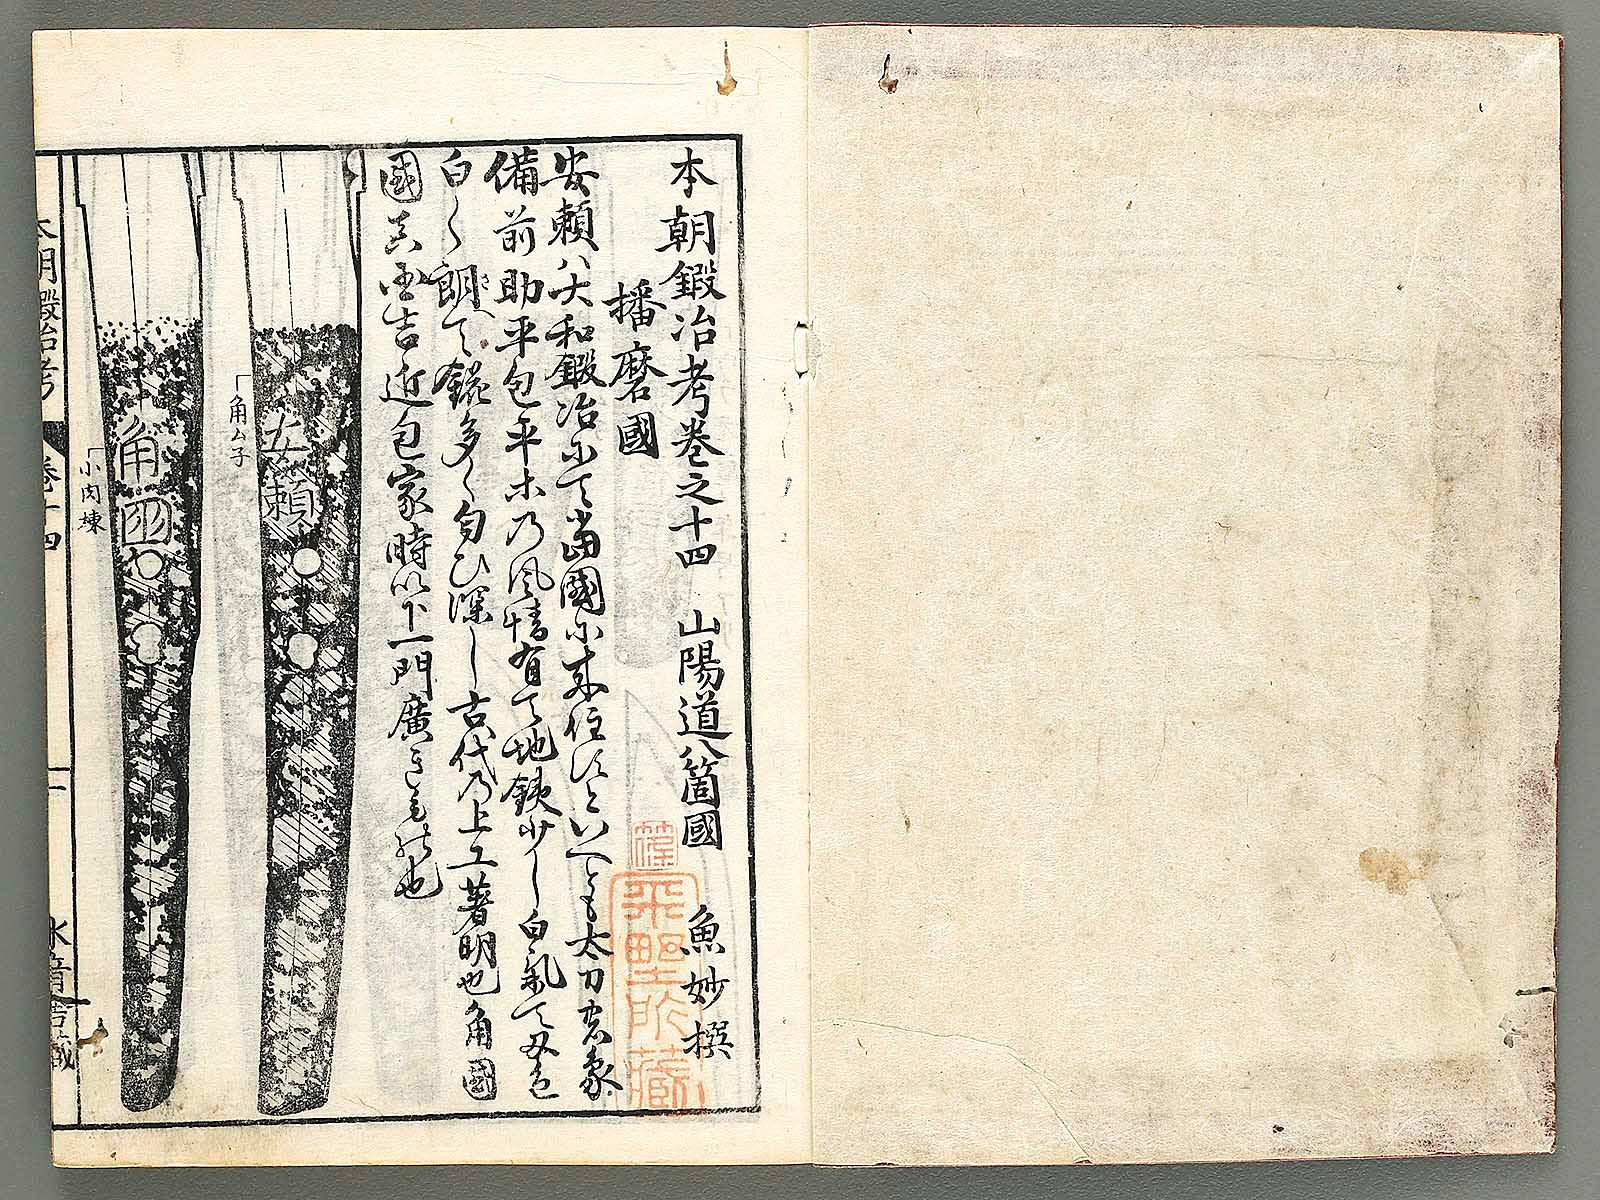 本朝鍛冶考巻之十四　山陽道八箇國　魚妙撰
播磨國
安頼ハ大和鍛冶にて當國に来住すといへとも太刀姿象
備前助平包平木乃風情有て地鉄少し白氣て刃色
白く 錵多く匂ひ深し古代乃上工著明也角國
國吉近包家時以下一門廣きもの也
安頼
「角ムネ
角國
「小肉棟
本朝鍛冶考 巻十四